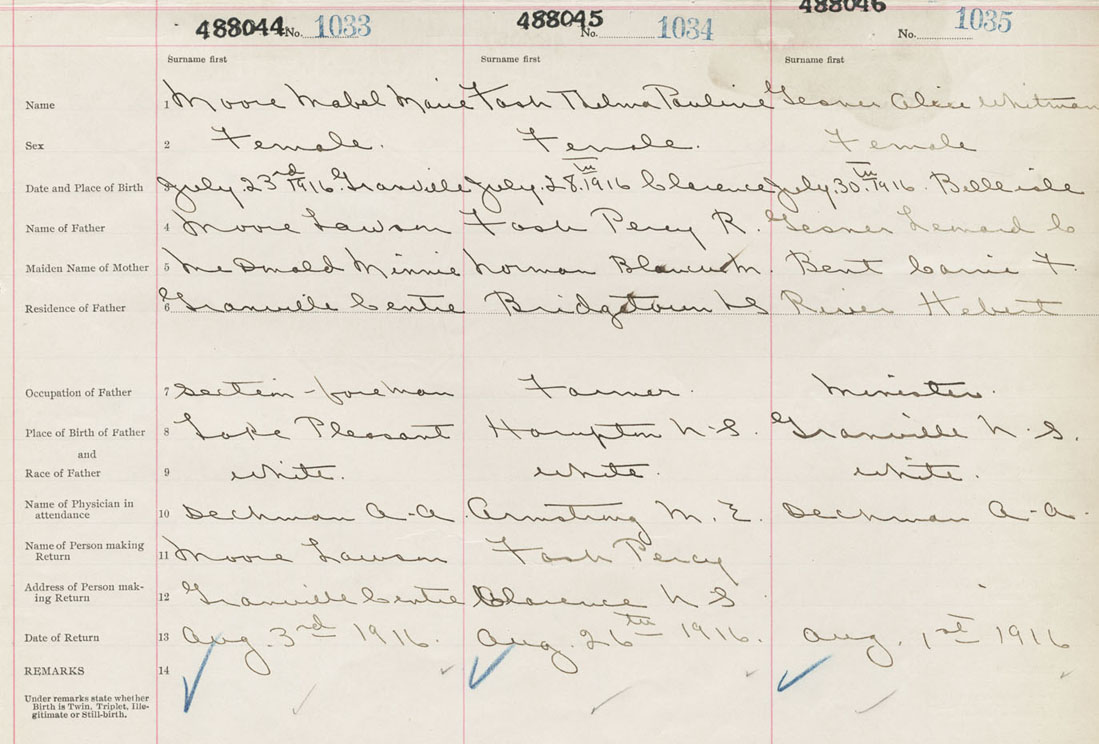 488044 No. 1033 488045 No. 1034 488046 No. 1035
Surname first Surname first Surname first
Name 1 Moore Mabel Marie Fash Thelma Pauline Gesner Alice Whitman
Sex 2 Female. Female. Female
Date and Place of Birth 3 July. 23rd 1916. Granville July. 28.th 1916 Clarence July. 30.th 1916. Belleisle
Name of Father 4 Moore Lawson Fash Percy R. Gesner Lemard Co
Maiden Name of Mother 5 McDonald Minnie Norman M. Bent Carrie F.
Residence of Father 6 Granville Centre Bridgetown NS River Hebert
Occupation of Father 7 Section-foreman Farmer. Minister.
Place of Birth of Father 8 Lake Pleasant Hampton N.S. Granville N.S.
and
Race of Father 9 White. White. White.
Name of Physician in
attendance 10 Dechman A-A Armstrong M. E. Dechman A-A.
Name of Person making
Return 11 Moore Lawson Fash Percy
Address of Person mak-
ing Return 12 Granville Centre Clarence N S
Date of Return 13 Aug. 3rd 1916. Aug. 26th 1916. Aug. 1st 1916
REMARKS 14
Under remarks state whether
Birth is Twin, Triplet, Ille-
gitimate or Still-birth.